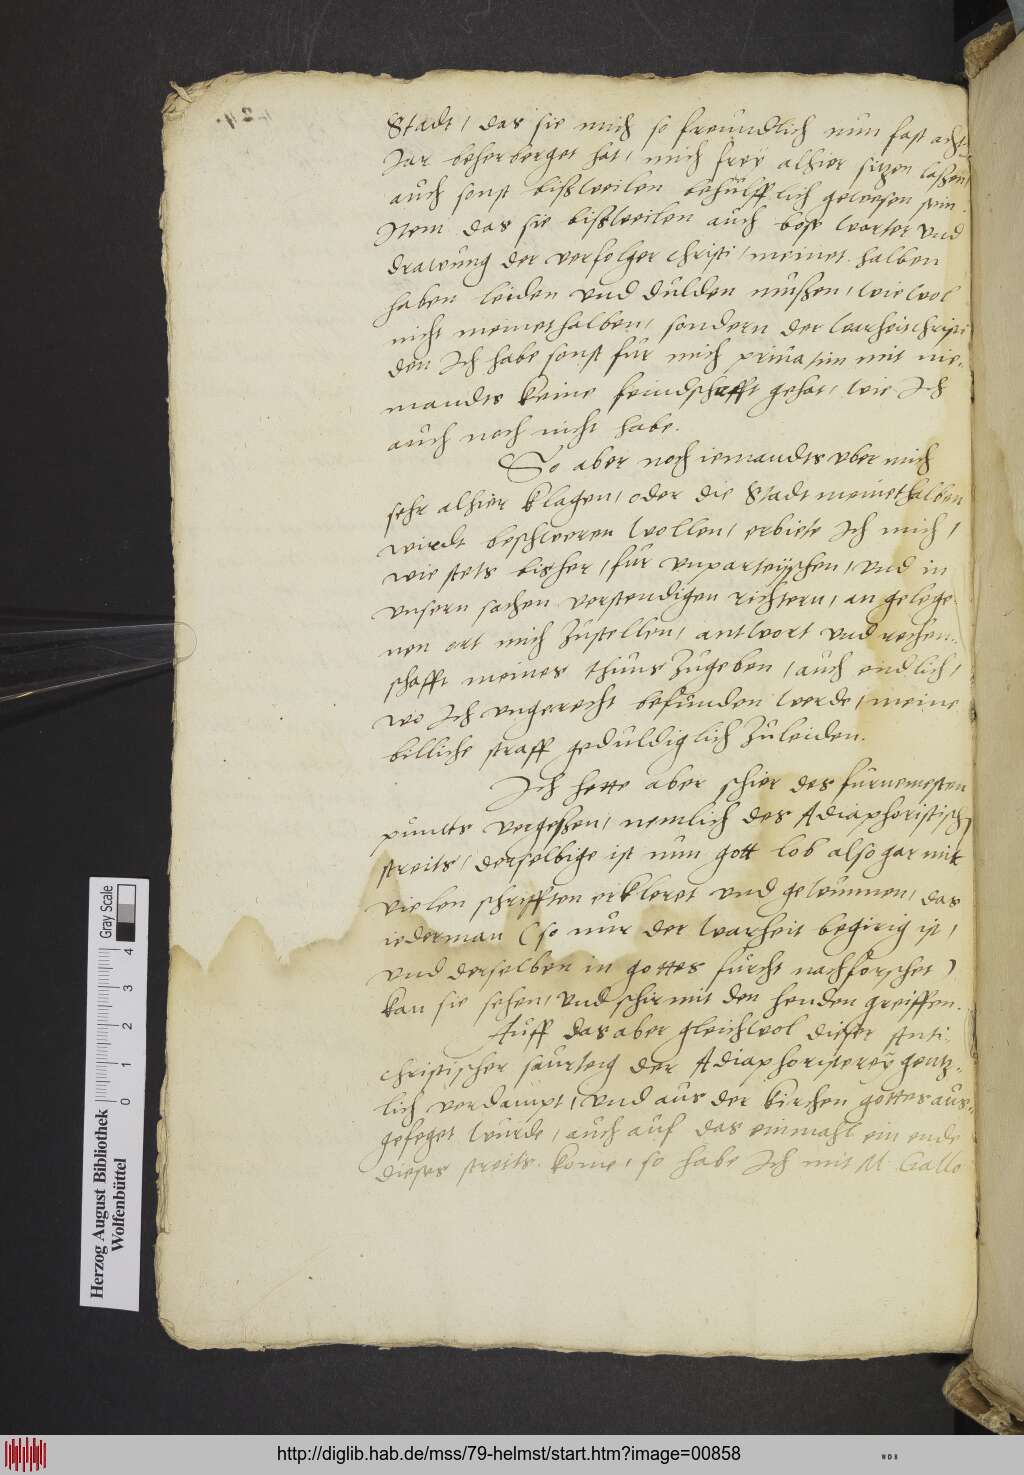 Stadt, das sie mich so freundlich nun fast acht
Jar beherberget hat, mich frey alhier sitzen laßen,
auch sonst bißweilen behülfflich gewesen sein.
Item das sie bißweilen auch bose wortet vnd
drawung der verfolger Christi, meinet halben
haben leiden vnd dulden mußen, wie wol
nicht meinethalben, sondern der warheit Christi
den Ich habe sonst fur mich priuatim mit nie-
mandts keine feindschafft gehat, wie Ich
auch noch nicht habe.
So aber noch iemandts vber mich
sehr alhier klagen, oder die Stadt meinethalben
wirdt beschweren wollen, erbiete Ich mich,
wie stets bisher, fur vnparteyschen, vnd in
vnsern sachen verstendigen richtern, an gelege-
nen ort mich zustellen, antwort vnd rechen-
schafft meines thuns zugeben, auch endlich,
wo Ich vngerecht befunden werde, meine
billiche straff geduldiglich zuleiden.
Ich hette aber schier des furnemesten
puncts vergeßen, nemlich des Adiaphoristisch
streits, derselbige ist nun gott lob also gar mit
vielen schrifften erkleret vnd gewunnen, das
iederman (so nur der warheit begirig ist,
vnd derselben in gottes furcht nachforschet)
kan sie sehen, vnd schir mit den henden greiffen.
Auff das aber gleichwol dieser Anti-
christischer saurteig der Adiaphoristerey gentz-
lich verdampt, vnd aus der kirchen gottes aus-
gefeget wurde, auch auf das einmahl ein ende
dieses streits kome, so habe Ich mit M. Gallo
Herzog August Bibliothek
Wolfenbüttel
0 1 2 3 4
Gray Scale
http://diglib.hab.de/mss/79-helmst/start.htm?image=00858